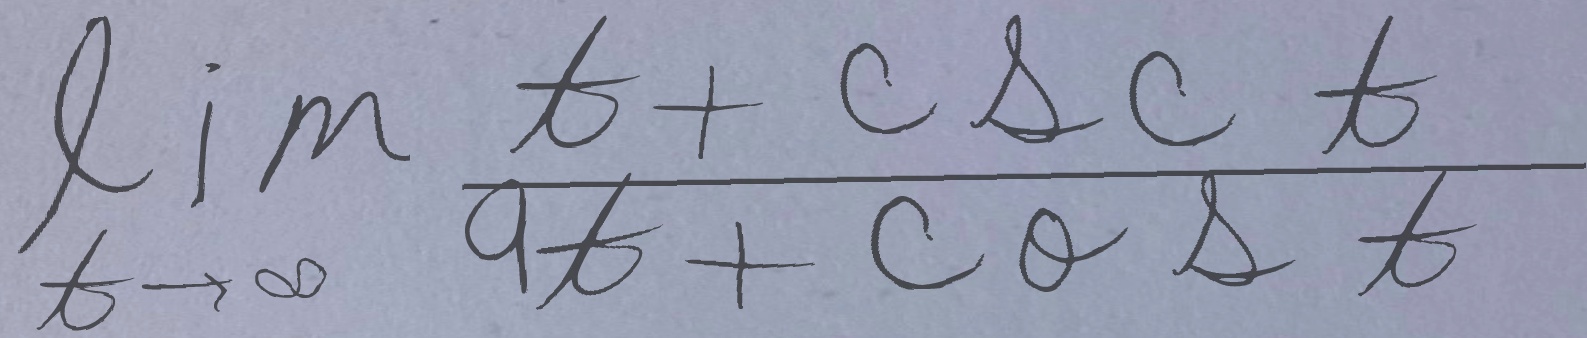 lim t + csc t
t → ∞ 9t + cos t